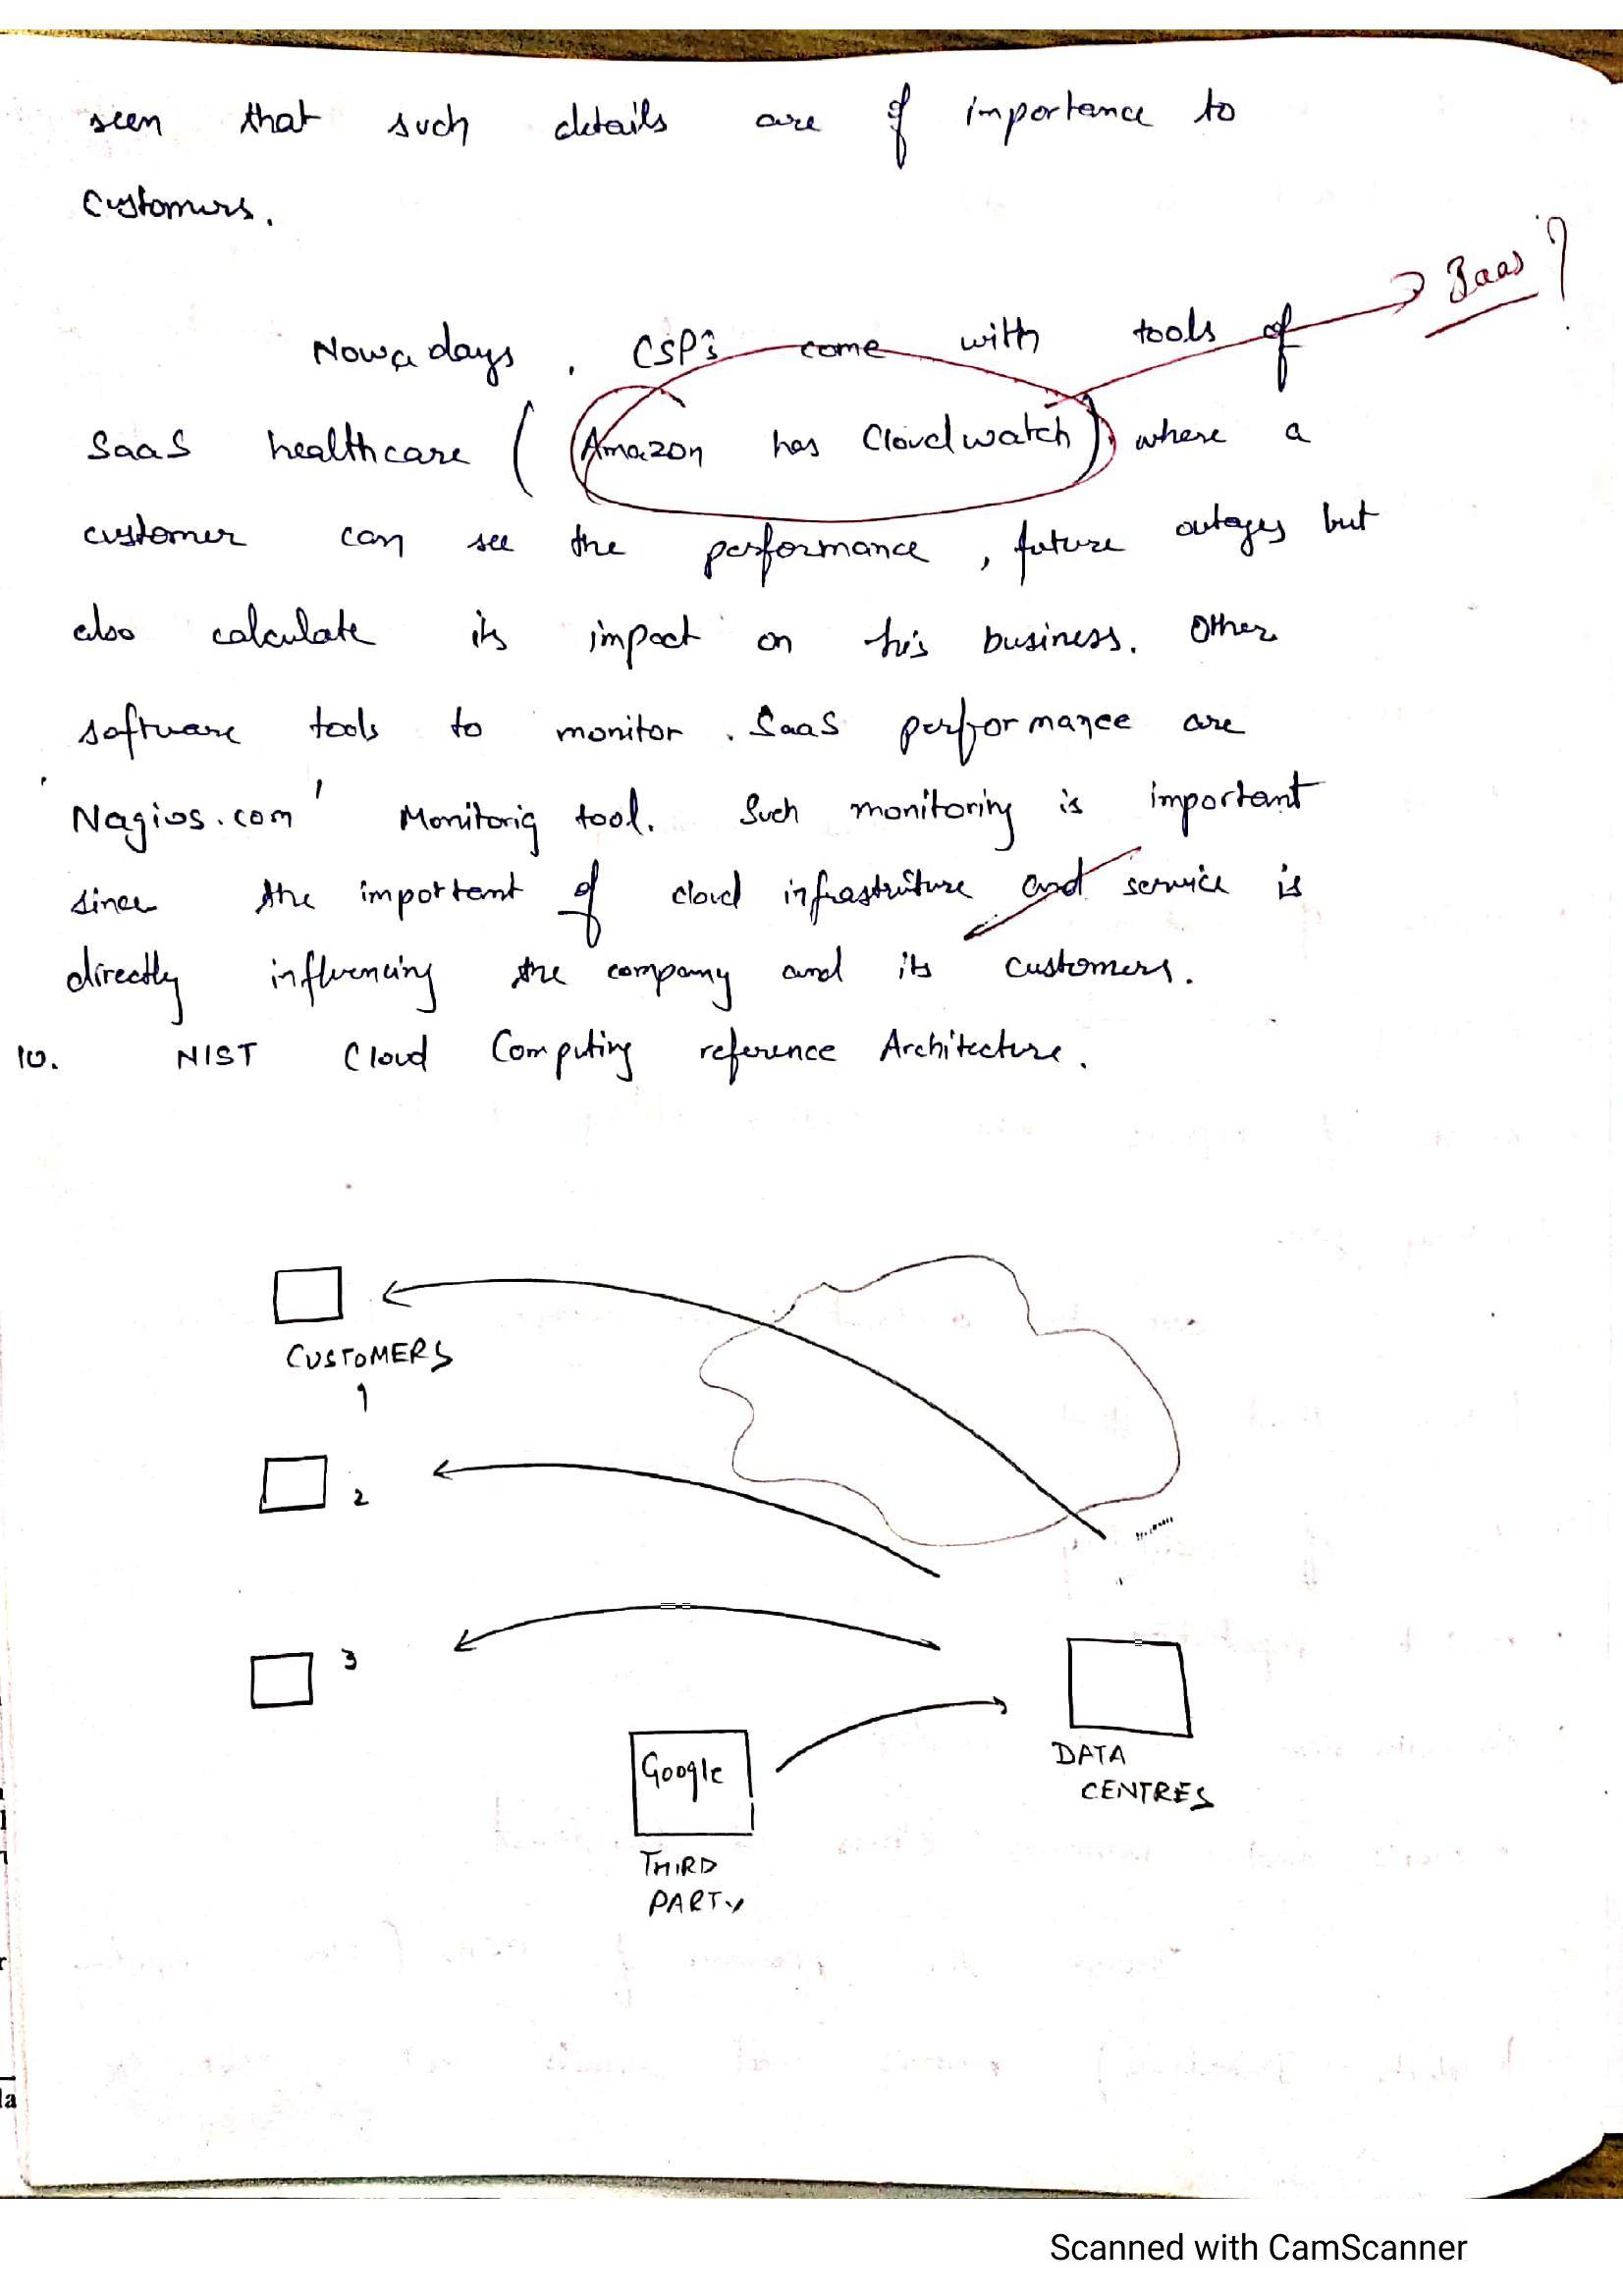 seen that such details are of importance to
customers.
Baas ?
Nowadays, CSP's come with tools of
SaaS healthcare (Amazon has Cloudwatch), where a
customer can see the performance, future outages but
also calculate its impact on his business. Other
software tools to monitor SaaS performance are
'Nagios.com' Monitorig tool. Such monitoring is important
since the important of cloud infrastriture and service is
directly influencing the company and its customers.
10. NIST Cloud Computing reference Architecture.
CUSTOMERS
1
2
3
Google
DATA
CENTRES
THIRD
PARTY
la
Scanned with CamScanner